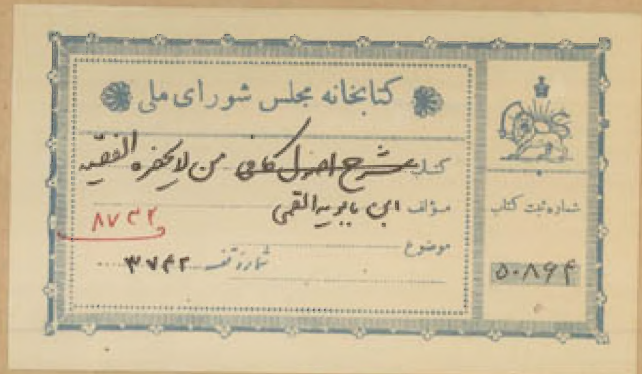 کتابخانه مجلس شورای ملی
کتاب شرح اصول کافی من لایحضره الفقیه
مؤلف ابن بابویه القمی
۸۷۴۲
موضوع
شماره قفسه ۳۷۴۲
شماره ثبت کتاب
۵۰۸۶۴